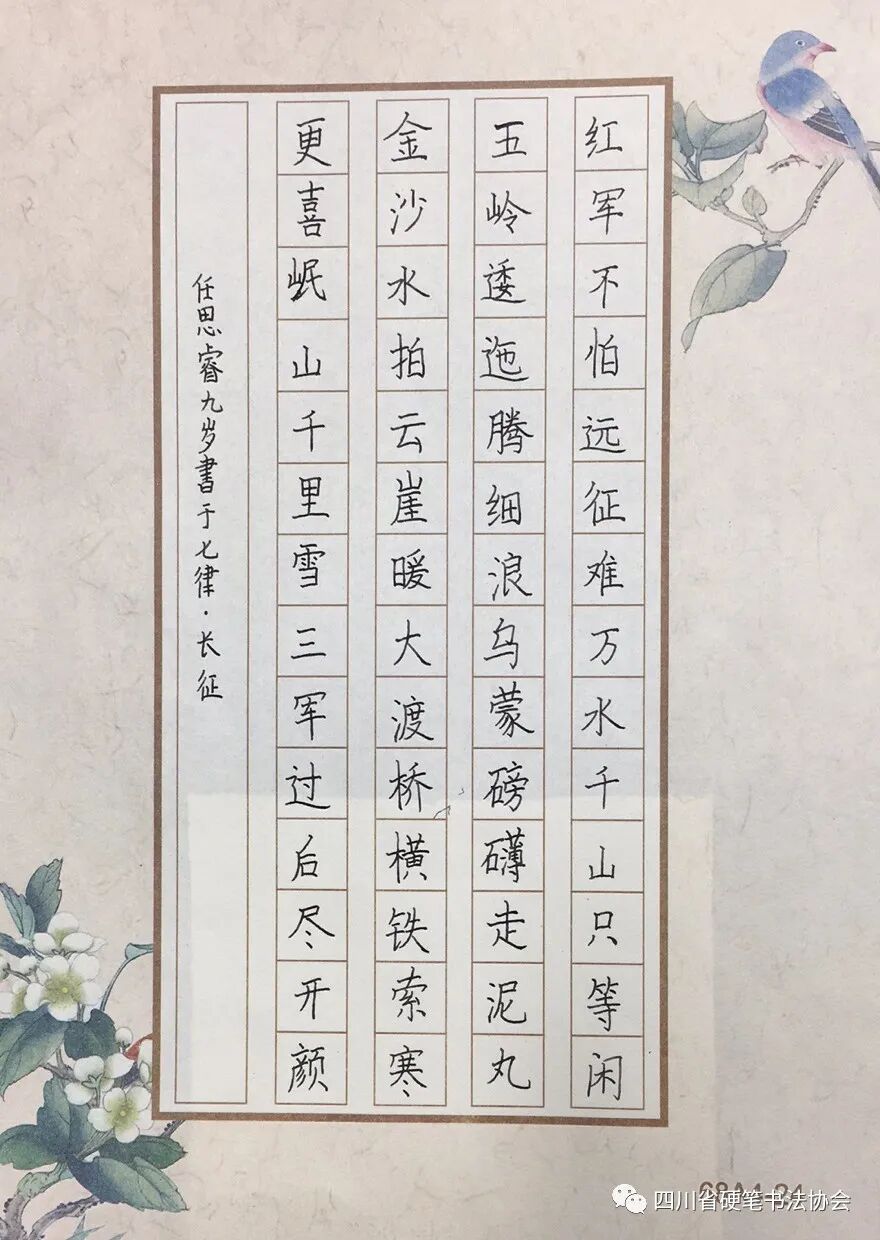 红军不怕远征难万水千山只等闲
五岭逶迤腾细浪乌蒙磅礴走泥丸
金沙水拍云崖暖大渡桥横铁索寒
更喜岷山千里雪三军过后尽开颜
任思睿九岁書于七律·长征
四川省硬笔书法协会